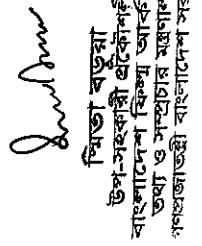 স্মিতা বড়ুয়া
উপ-সহকারী প্রকৌশলী
বাংলাদেশ ফিল্ম আর্কাইভ
তথ্য ও সম্প্রচার মন্ত্রণালয়
গণপ্রজাতন্ত্রী বাংলাদেশ